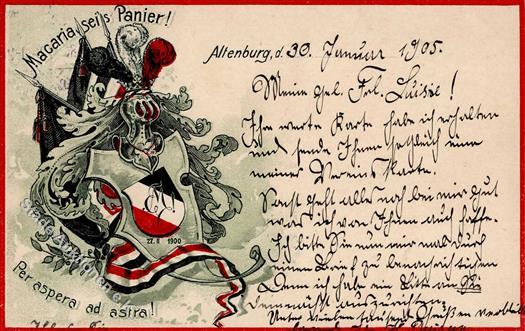 Macaria sei's Panier!
Altenburg, d. 30. Januar 1905.
Meine gel. Frl. Luise!
Ihre werte Karte habe ich erhalten
und sende Ihnen
meines Vereins Karte.
Sonst geht alles noch bei mir gut
was ich von Ihnen auch hoffe.
Ich bitte Sie nun mir mal durch
einen Brief zu benachrichtigen
Denn ich habe ein Bitte an Sie
22. II 1900
Per aspera ad astra!
Unter vielen tausend Grüßen